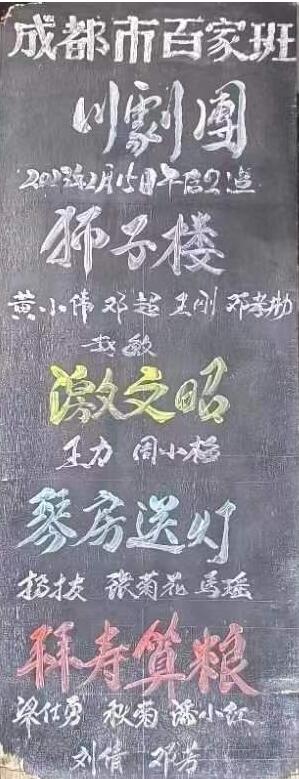 成都市百家班
川劇團
2023年2月15日午后2点
狮子楼
黄小伟 邓超 王刚 邓孝勋
赵敏
激文昭
王力 周小梅
琴房送灯
杨枝 张菊花 马瑶
拜寿算粮
梁仕勇 秋菊 潘小红
刘倩 邓芳